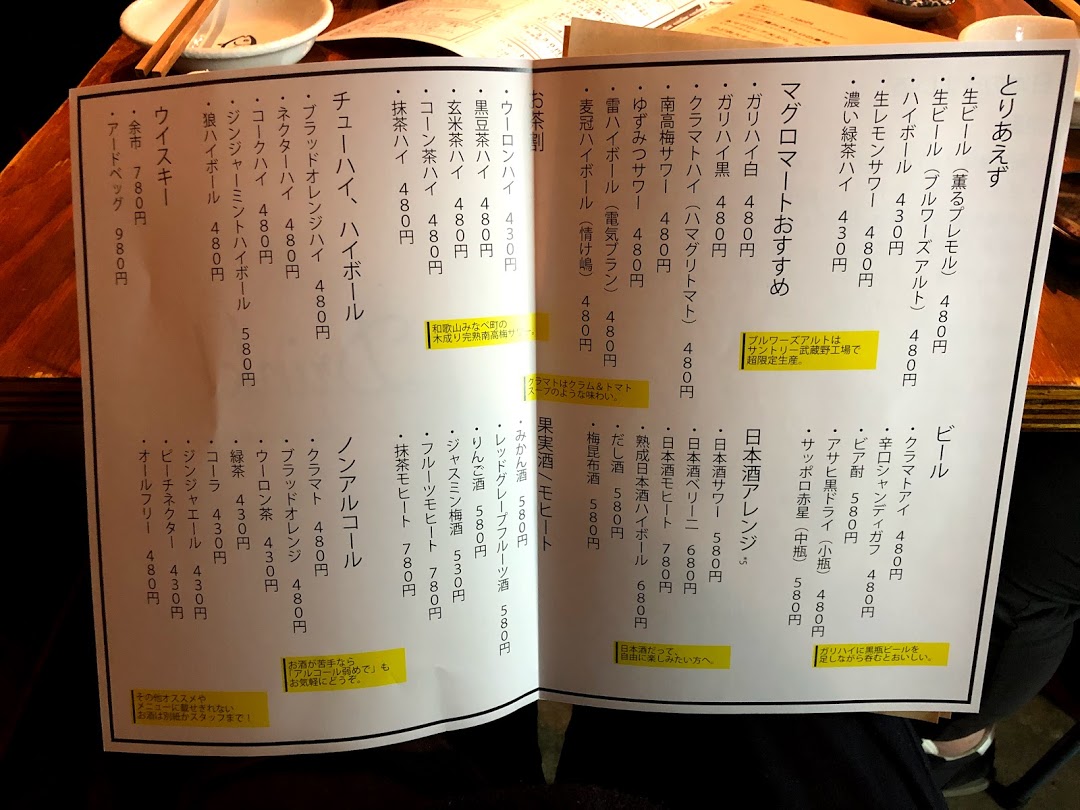 とりあえず
・生ビール（薫るプレモル）480円
・生ビール（ブルワーズアルト）480円
・ハイボール 430円
・生レモンサワー 480円
・濃い緑茶ハイ 430円
ブルワーズアルトは
サントリー武蔵野工場で
超限定生産。
マグロマートおすすめ
・ガリハイ白 480円
・ガリハイ黒 480円
・クラマトハイ（ハマグリトマト）480円
・南高梅サワー 480円
・ゆずみつサワー 480円
・雷ハイボール（電気ブラン）480円
・麦冠ハイボール（情け嶋）480円
クラマトはクラム＆トマト
スープのような味わい。
お茶割
・ウーロンハイ 430円
・黒豆茶ハイ 480円
・玄米茶ハイ 480円
・コーン茶ハイ 480円
・抹茶ハイ 480円
和歌山みなべ町の
木成り完熟南高梅サ
チューハイ、ハイボール
・ブラッドオレンジハイ 480円
・ネクターハイ 480円
・コークハイ 480円
・ジンジャーミントハイボール 580円
・狼ハイボール 480円
ウイスキー
・余市 780円
・アードベッグ 980円
ビール
・クラマトアイ 480円
・辛口シャンディガフ 480円
・ビア酎 580円
・アサヒ黒ドライ（小瓶）480円
・サッポロ赤星（中瓶）580円
ガリハイに黒瓶ビールを
足しながら呑むとおいしい。
日本酒アレンジ
・日本酒サワー 580円
・日本酒ベリーニ 680円
・日本酒モヒート 780円
・熟成日本酒ハイボール 680円
・だし酒 580円
・梅昆布酒 580円
日本酒だって、
自由に楽しみたい方へ。
果実酒／モヒート
・みかん酒 580円
・レッドグレープフルーツ酒 580円
・りんご酒 580円
・ジャスミン梅酒 530円
・フルーツモヒート 780円
・抹茶モヒート 780円
ノンアルコール
・クラマト 480円
・ブラッドオレンジ 480円
・ウーロン茶 430円
・緑茶 430円
・コーラ 430円
・ジンジャエール 430円
・ピーチネクター 430円
・オールフリー 480円
お酒が苦手なら
「アルコール弱めで」も
お気軽にどうぞ。
その他オススメや
メニューに載せきれない
お酒は別紙かスタッフまで！